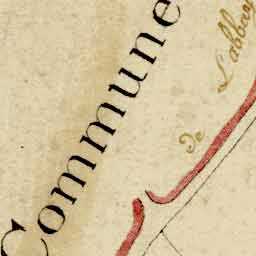 Commune
de
Labbay